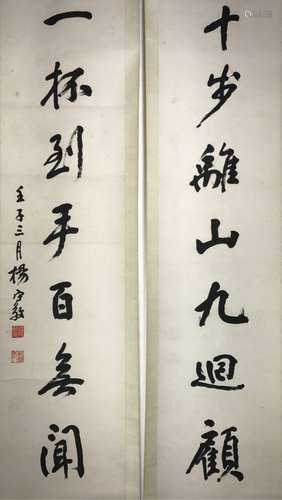 十步離山九迴顧
一杯到手百無聞
壬子三月楊守敬